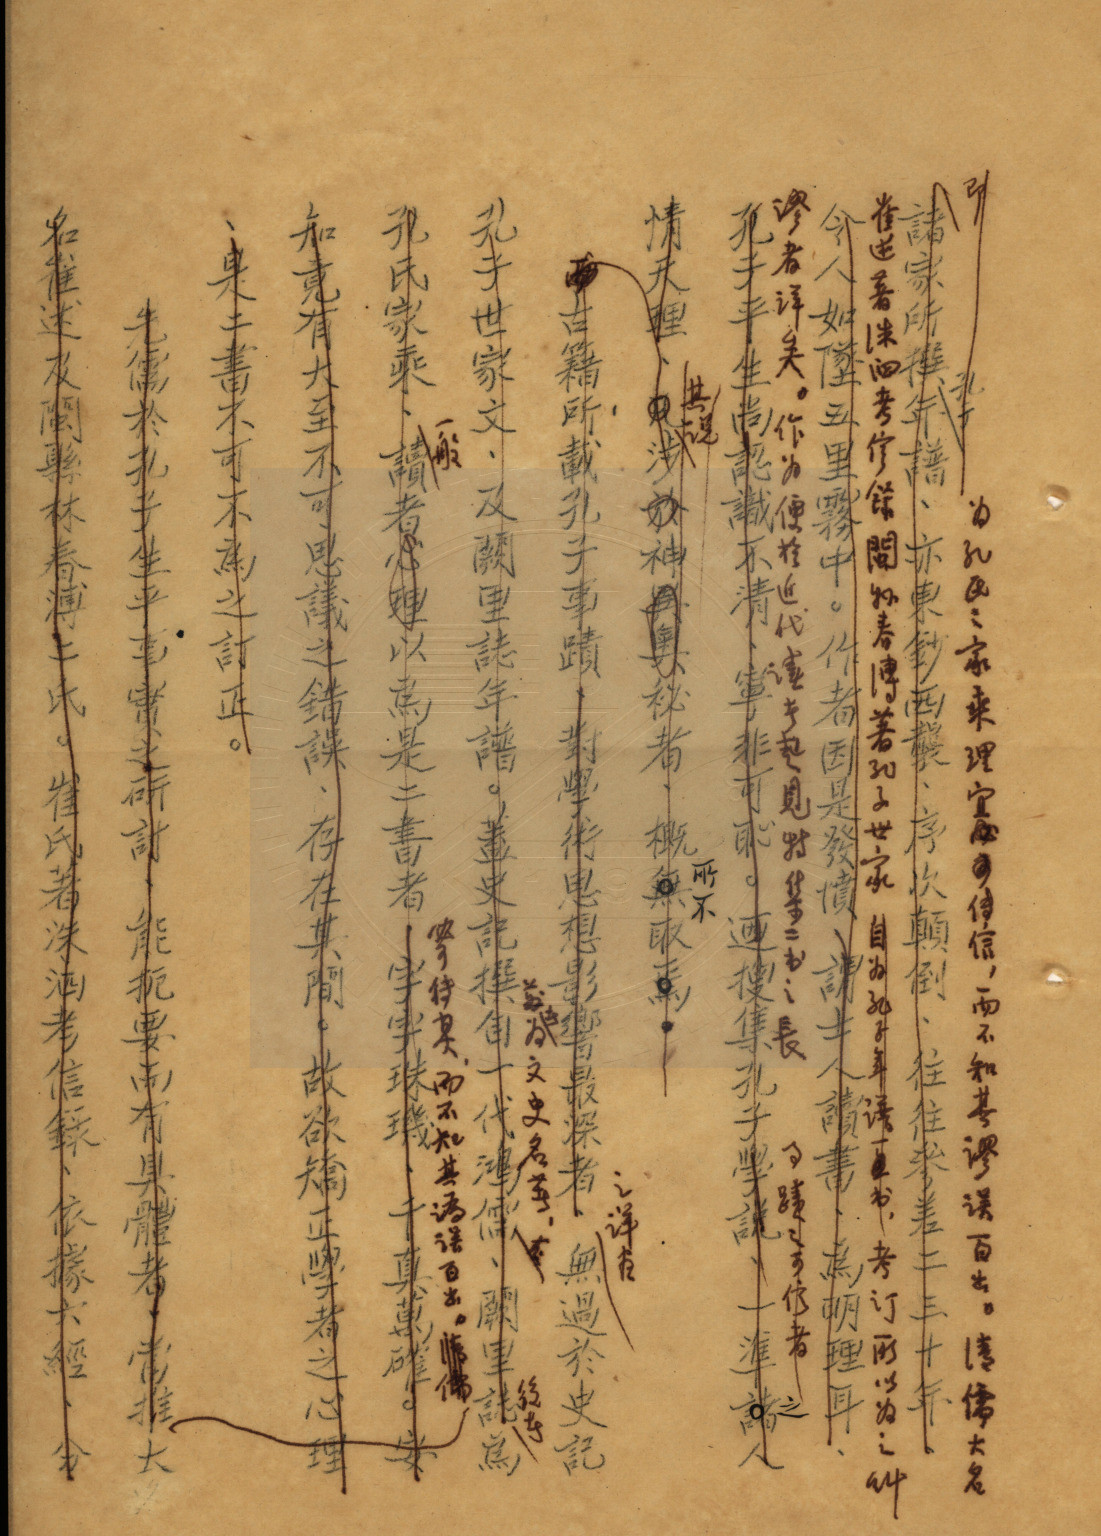 即
為孔氏之家乘理宜可信，而不知其謬误百出。清儒大名
諸家所撰年譜、亦東鈔西襲、序次顛倒、往往參差二三十年、
孔子
崔述著洙泗考信錄閩林春溥著孔子世家 自為孔子年譜 考订所以為之糾
今人如墜五里霧中。作者因是發憤、謂士人讀書、為明理耳、
謬者详矣。作為便於近代 考起見特集二书之長
事蹟之可信者
孔子平生尚認識不清、寧非可恥。迺搜集孔子學說、一準諸人
之
其說
所不
情天理、涉於神異奧秘者、概無取焉
之详者
古籍所載孔子事蹟、對學術思想影響最深者、無過於史記
為文史名著，
後者
孔子世家文、及闕里誌年譜。蓋史記撰自一代鴻儒、闕里誌為
一般
而不知其謬误百出。清儒
孔氏家乘、讀者心理以為是二書者 字字珠璣、千真萬確。安
知竟有大至不可思議之錯誤、存在其間。故欲矯正學者之心理
、是二書不可不為之訂正。
先儒於孔子生平事實之研討、能扼要而有具體者、當推大
名崔述及閩縣林春溥二氏。崔氏著洙泗考信錄、依據六經、分